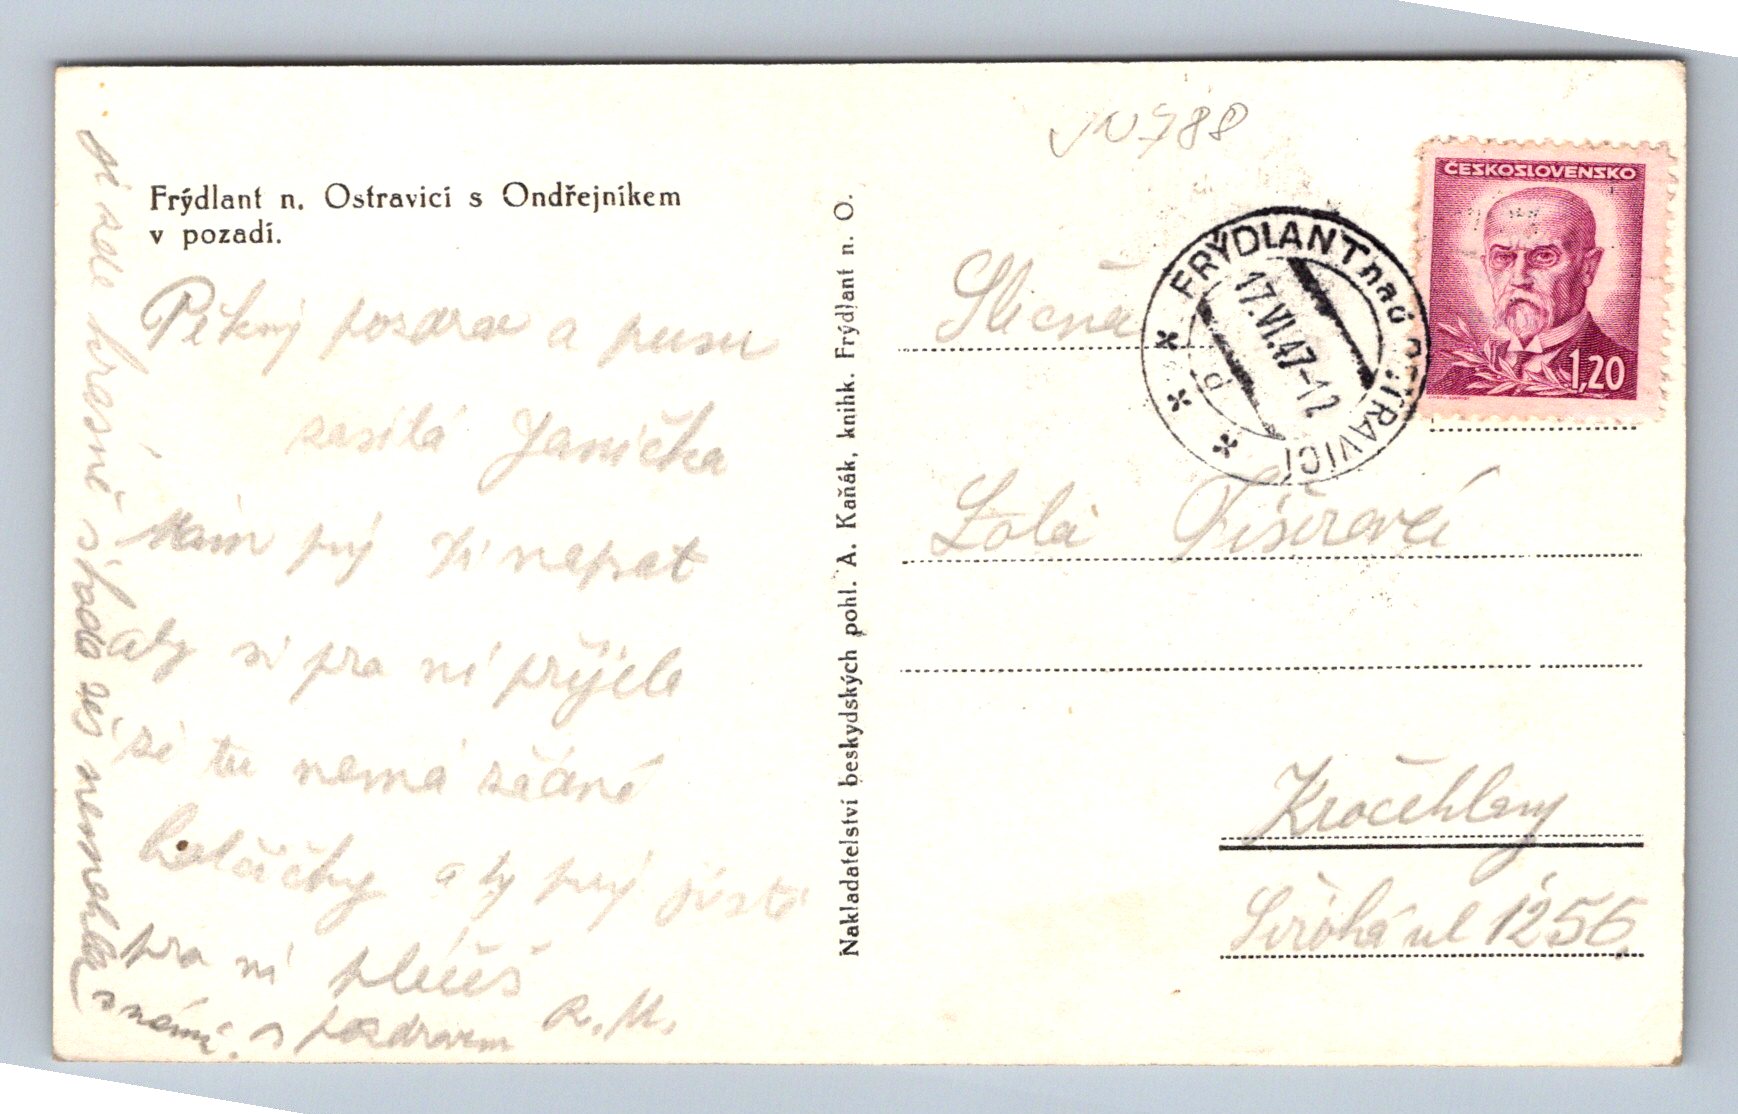 Frýdlant n. Ostravicí s Ondřejníkem
v pozadí.
Pěkný pozdrav a pusu
zasílá Janička
mám prý napsat
aby si pro ní přijela
že tu nemá žádné
holčičky a ty prý jistě
pro ní pláčeš
s pozdravem R. M.
je zde krásně škoda že nemohla
s námi.
Nakladatelství beskydských pohl. A. Kaňák, knihk. Frýdlant n. O.
788
ČESKOSLOVENSKO
1,20
FRÝDLANT nad OSTRAVICÍ
17.VI.47-12
Slečna
Lola Fišerová
Kročehlavy
Široká ul 1256.